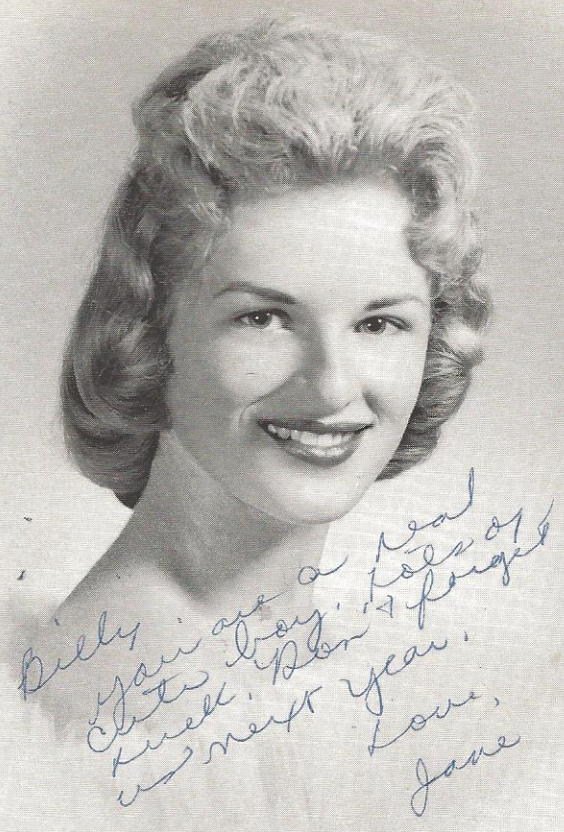 Billy,
You are a real
cute boy. Lots of
luck. Don't forget
us next year.
Love,
Jane